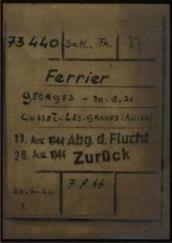 73440 Sch. Fr. 27
Ferrier
GEORGES - 30.9.21
CUSSET-LES-GRAVES (ALLIER)
11. Aug. 1944 Abg. d. Flucht
26. Aug. 1944 Zurück
20.4.44 7.8.44